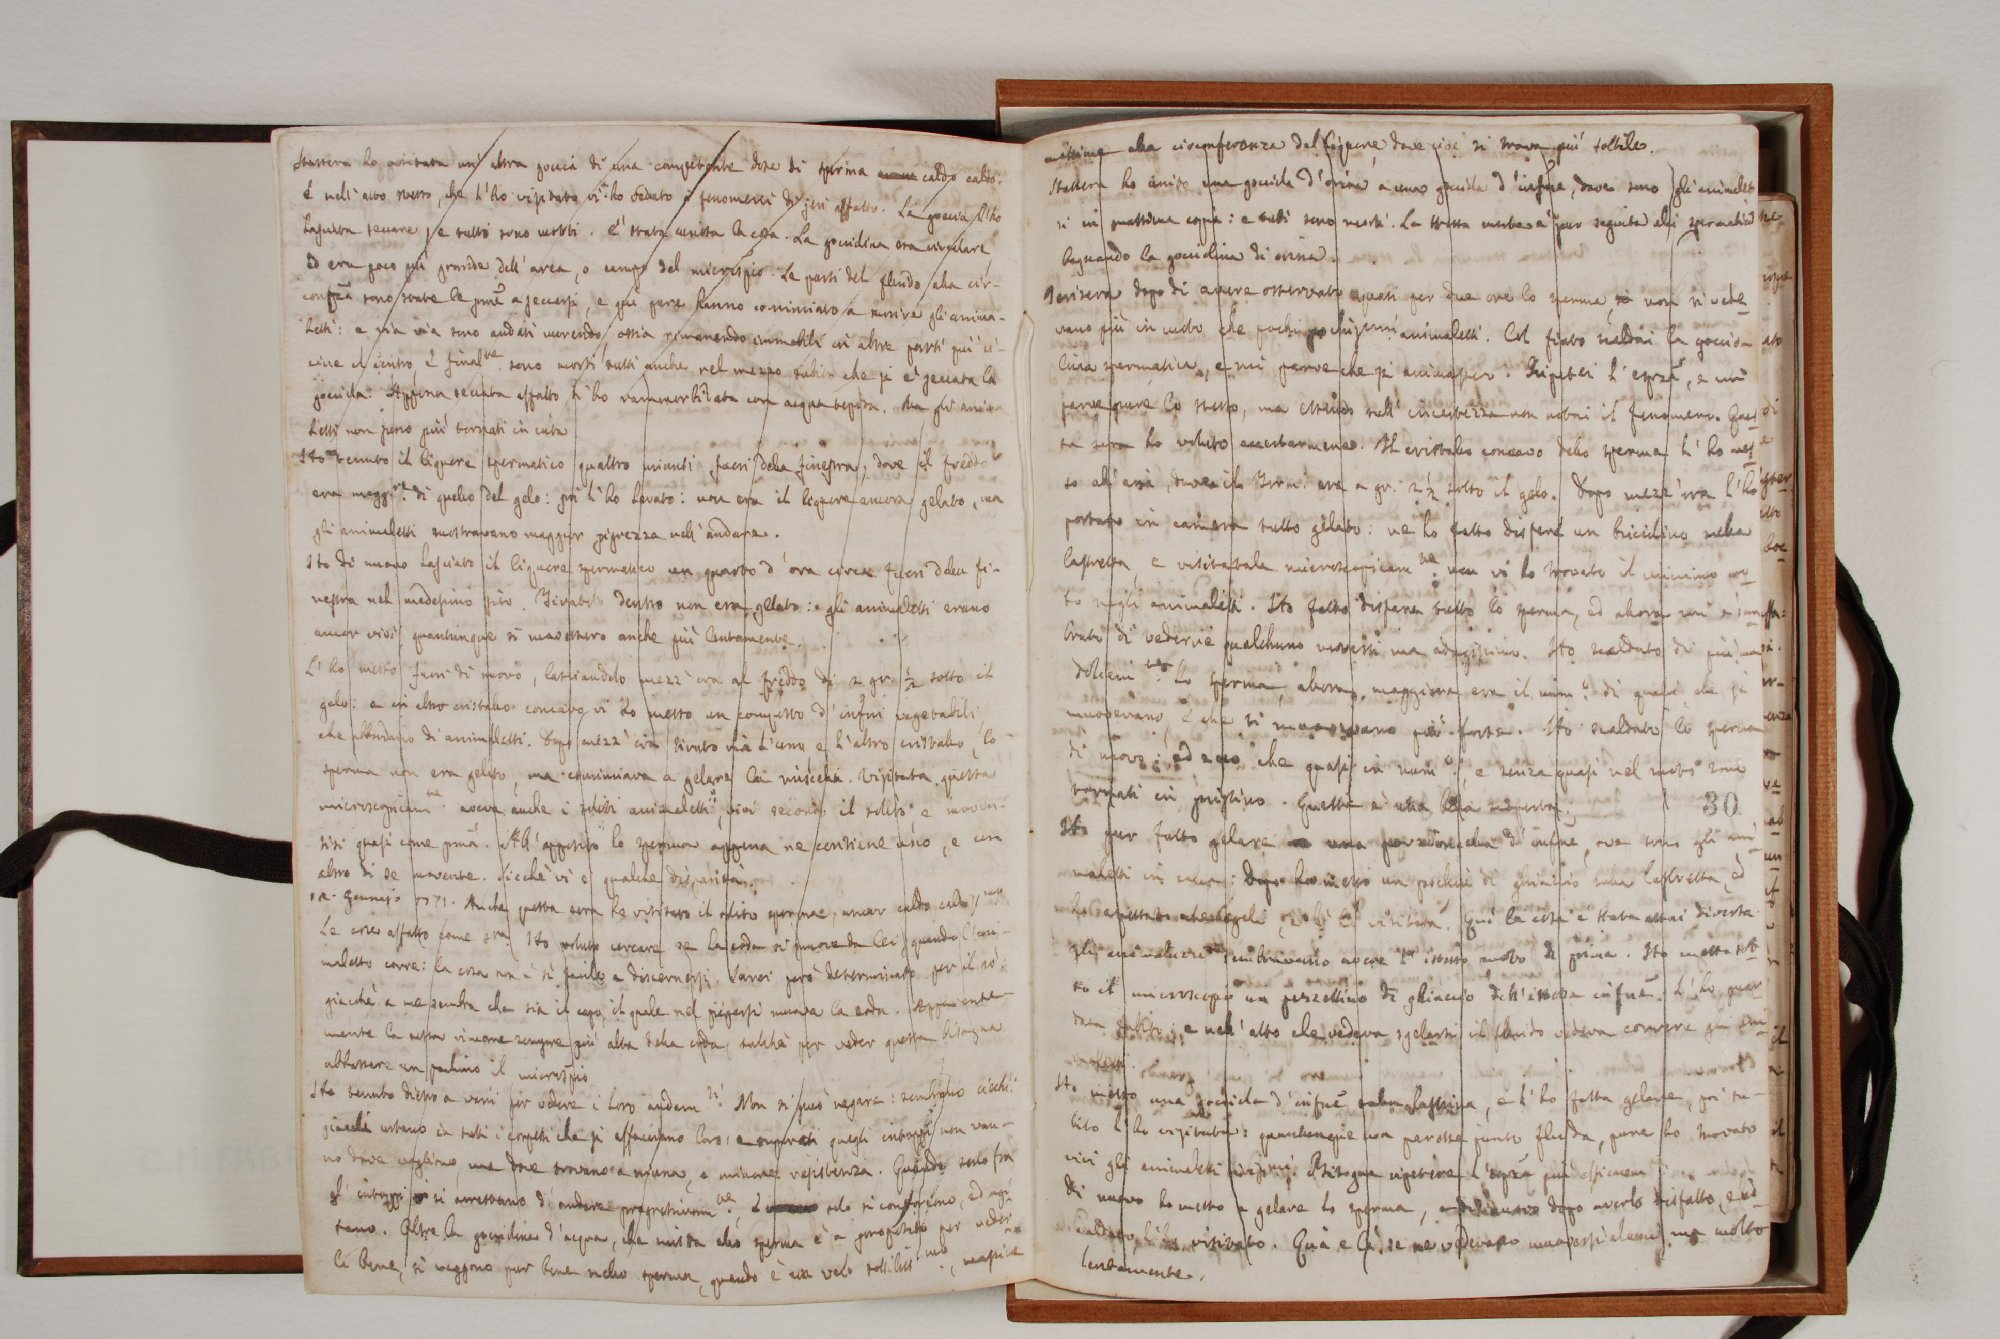 Stassera ho visitata un' altra goccia di una competente dose di sperma caldo caldo.
E nell' atto stesso, che l' ho visitato vi ho veduto i fenomeni di jeri affatto. La goccia l' ho
lasciata seccare, e tutti sono morti. E' stata curiosa la cosa. La gocciolina era circolare
ed era poco più grande dell' area, o campo del microscopio. Le parti del fluido alla cir-
confza sono state le prime a seccarsi, e qui pure hanno cominciato a morire gli anima-
letti: e via via sono andati morendo, ossia rimanendo immobili in altre parti più vi-
cine al centro, e finalme. sono morti tutti anche nel mezzo subito che si è seccata la
gocciola. Appena seccata affatto l' ho rammorbidata con acqua tepida. Ma gli anima
letti non sono più tornati in vita
Ho tenuto il liquore spermatico quattro minuti fuori della finestra, dove il freddo
era maggre. di quello del gelo: poi l' ho levato: non era il liquore ancora gelato, ma
gli animaletti mostravano maggior pigrezza nell' andare.
Ho di nuovo lasciato il liquore spermatico un quarto d' ora circa fuori della fi-
nestra nel medesimo sito. Tirato dentro non era gelato: gli animaletti erano
ancor vivi, quantunque si movessero anche più lentamente.
L' ho messo fuori di nuovo, lasciandolo mezz' ora al freddo di 2 gr. 1/2 sotto il
gelo: e in altro cristallo concavo vi ho messo un composto d' infusi vegetabili,
che abbondano di animaletti. Dopo mezz' ora tirato via l' uno e l' altro cristallo, lo
sperma non era gelato, ma cominciava a gelare la miscela. Visitata questa
microscopicamte. aveva anche i soliti animaletti, vivi secondo il solito e moven-
tisi quasi come prima. All' opposito lo sperma appena ne contiene uno, e un
altro di se movente. Sicchè vi è qualche disparità.
Gennajo 1771. Anche questa sera ho visitato il solito sperma, ancor caldo caldo
Le cose affatto come sra. Ho voluto cercare se la coda si muove da lei quando l' ani-
maletto corre: la cosa non è sì facile a discernersi. Sarei però determinato per il nò:
giacchè a me sembra che sia il capo, il quale nel piegarsi muove la coda. Apparente-
mente la testa rimane sempre più alta della coda, talchè per veder questa bisogna
abbassare un pochino il microscopio
Ho tenuto dietro a varii per vedere i loro andamti. Non si può negare: somigliano ciechi:
giacchè urtano in tutti i corpetti che si affacciano loro: e superati quegli intoppi non van-
no dove vogliono, ma dove trovano a minore resistenza. Quando sono fra
gl' intoppi si arrestano di andare progressivamte, solo si contorcono, ed agi
tano. Oltre la gocciolina d' acqua, che mista allo sperma è a proposito per veder-
li bene, si veggono pur bene nello sperma, quando è un velo sottilissmo, massime
massime alla circonferenza del liquore, dove cioè si trova più sottile.
Stassera ho unito una gocciola d' orina a una gocciola d' infue, dove sono gli animaletti
in massima copia: e tutti sono morti. La stessa morte è pur seguita dei spermatici
bagnando la gocciolina di orina.
Jerisera dopo di avere osservato quasi per due ore lo sperma, non si vede
vano più in moto che pochi pochissimi animaletti. Col fiato scaldai la goccio-
lina spermatica, e mi parve che si animasser. Ripetei l' esprza, e mi
parve pure lo stesso, ma essendo nell' incertezza non notai il fenomeno. Ques
ta sera ho voluto accertarmene. Il cristallo concavo dello sperma l' ho mes
so all' aria, dove il Term. era a gr. 2 1/2 sotto il gelo. Dopo mezz' ora l' ho
portato in camera tutto gelato: ne ho fatto disfare un bricciolino sulla
lastretta, e visitatala microscopicamte. non vi ho trovato il minimo mo
to negli animaletti. Ho fatto disfare tutto lo sperma, ed allora mi è sem
brato di vederne qualchuno moversi ma adagissimo. Ho scaldato di più ma
dolcemte. lo sperma, allora maggiore era il num. di quelli, che si
muovevano, e che si muovevano più forte. Ho scaldato lo sperma
di nuovo; ed ecco che quasi in num., e senza quasi nel moto sono
tornati in pristino. Questa è una bella scoperta.
30
Ho pur fatto gelare una porzioncella d' infue, ove sono gli ani
maletti in : Dopo ho messo un pochin di ghiaccio sulla lastretta, ed
ho aspettato che si sgeli, e poi l' ho visitata. Qui la cosa è stata assai diversa.
Gli animaluzzi sembravano avere l' istesso moto di prima. Ho messo sot
to il microscopio un pezzettino di ghiaccio dell' istessa infue. L' ho guar
data subito, e nell' atto che vedeva sgelarsi il fluido vedeva correre gli ani
maletti.
Ho messo una gocciola d' infue sulla lastrina, e l' ho fatta gelare, poi su-
bito l' ho visitata: quantunque non paresse punto fluida, pure ho trovato
vivi gli animaletti. Bisogna ripetere l' esprza più
Di nuovo ho messo a gelare lo sperma, dopo averlo disfatto, e ris
caldato, l' ho visitato. Quà e là, se ne vedevano muoversi alcuni, ma molto
lentamente.